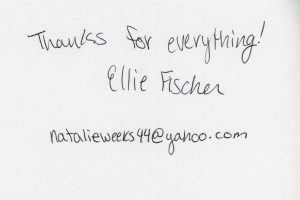 Thanks for everything!
Ellie Fischer
natalieweeks44@yahoo.com